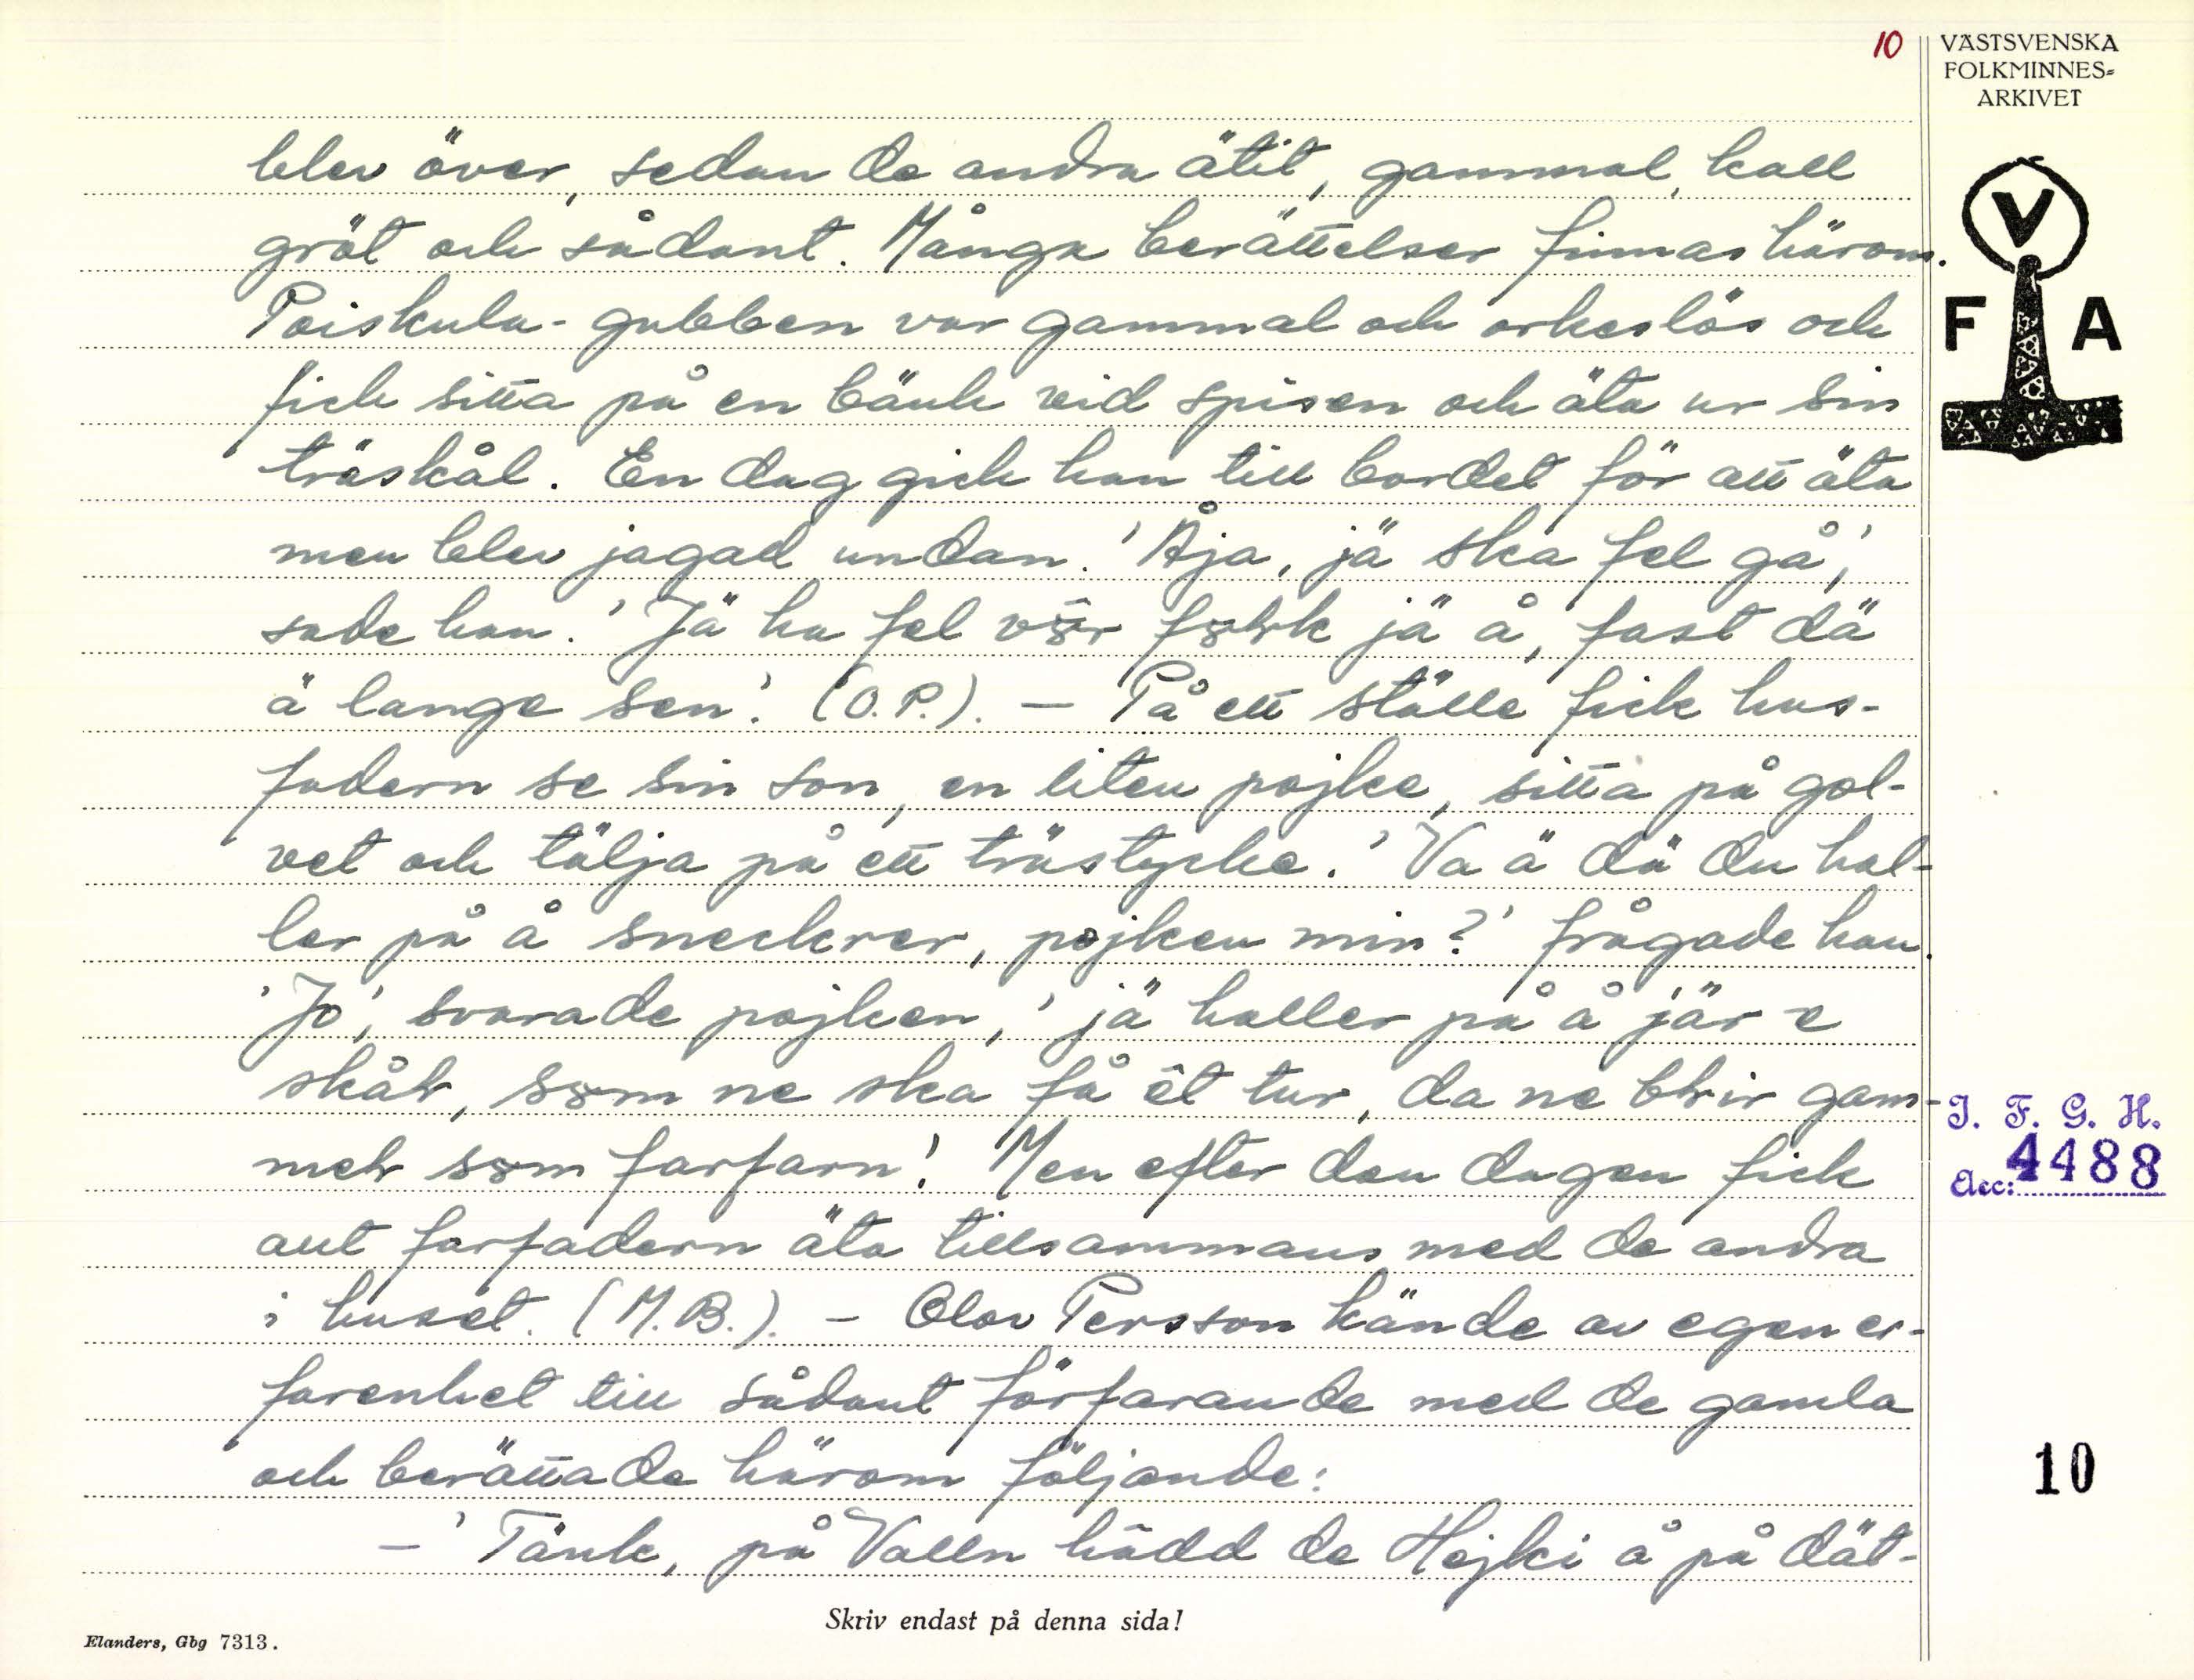 10
VÄSTSVENSKA
FOLKMINNES=
ARKIVET
blev över, sedan de andra ätit, gammal, kall
gröt och sådant. Många berättelser finnas härom.
Poiskula-gubben var gammal och orkeslös och
fick sitta på en bänk vid spisen och äta ur sin
träskål. En dag gick han till bordet för att äta
men blev jagad undan. 'Åja, jä ska fel gå',
sade han. 'Jä ha fel vör folk jä å, fast dä
ä lange sen'. (O.P.). — På ett ställe fick hus-
fadern se sin son, en liten pojke, sitta på gol-
vet och tälja på ett trästycke. 'Va ä dä du hal-
ler på å sneckrer, pojken min?' frågade han.
'Jo', svarade pojken, 'jä haller på å jär e
skål, som ne ska få êt tur, da ne blir gam-
mel som farfarn'. Men efter den dagen fick
ant farfadern äta tillsammans med de andra
i huset. (M.B.). - Olov Persson kände av egen er-
farenhet till sådant förfarande med de gamla
och berättade härom följande:
— 'Tänk, på Valln hädd de Hejki å på dät-
V
F A
I. F. G. H.
Acc: 4488
10
Skriv endast på denna sida!
Elanders, Gbg 7313.